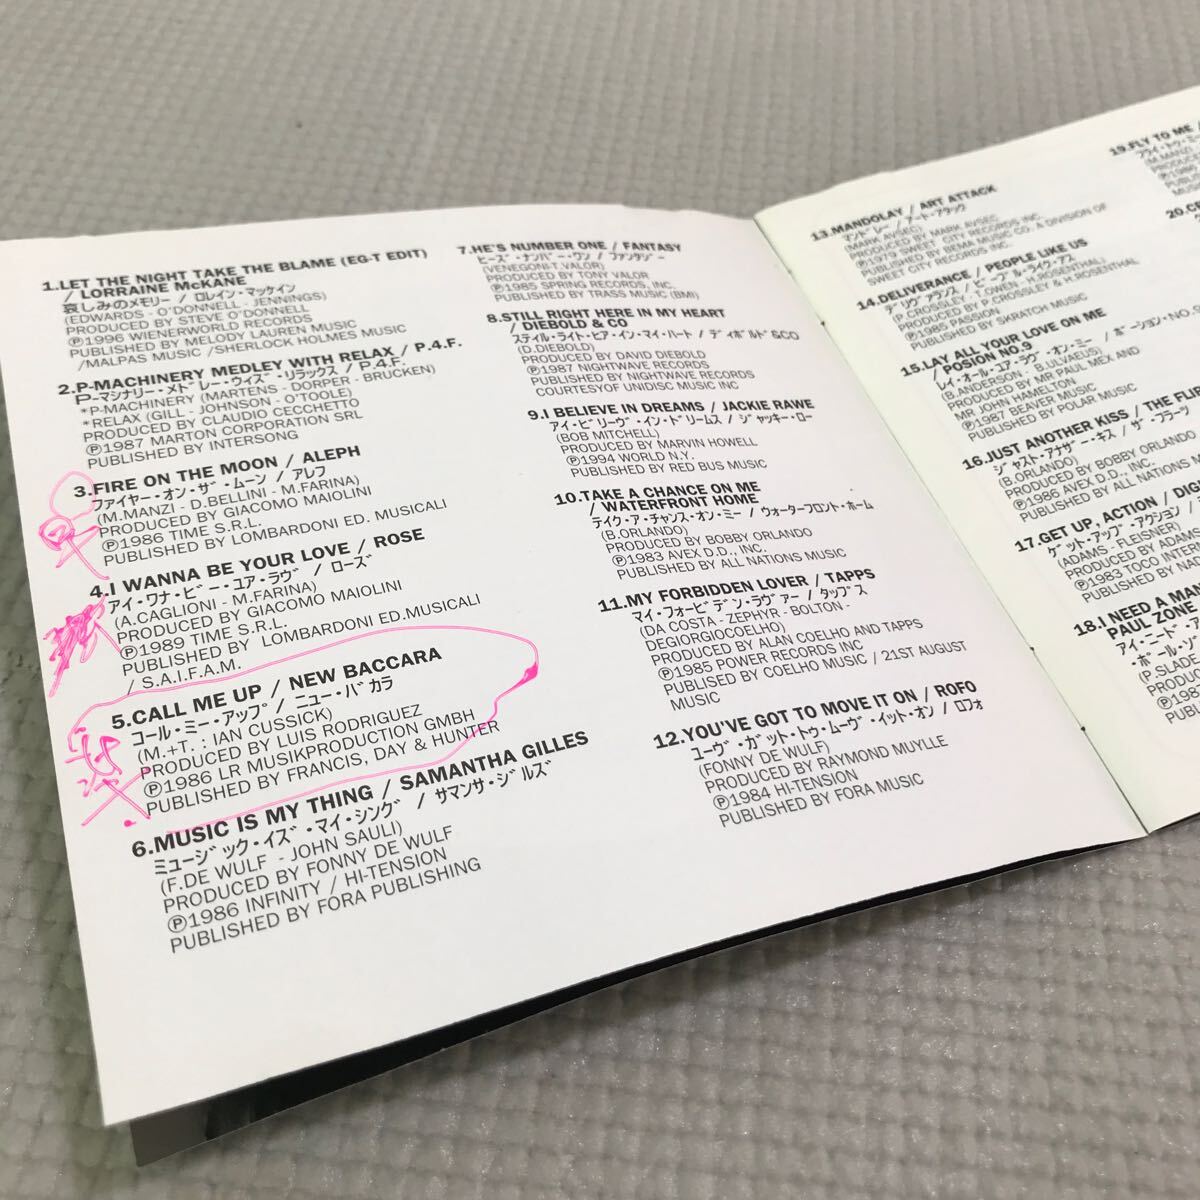 1.LET THE NIGHT TAKE THE BLAME (EG-T EDIT)
/ LORRAINE McKANE
哀しみのメモリー / ロレイン・マッケイン
(EDWARDS - O'DONNELL - JENNINGS)
PRODUCED BY STEVE O'DONNELL
Ⓟ1996 WIENERWORLD RECORDS
PUBLISHED BY MELODY LAUREN MUSIC
/MALPAS MUSIC /SHERLOCK HOLMES MUSIC
2.P-MACHINERY MEDLEY WITH RELAX / P.4.F.
P-マシナリー・メドレー・ウィズ・リラックス / P.4.F.
*P-MACHINERY (MARTENS - DORPER - BRUCKEN)
*RELAX (GILL - JOHNSON - O'TOOLE)
PRODUCED BY CLAUDIO CECCHETTO
Ⓟ1987 MARTON CORPORATION SRL
PUBLISHED BY INTERSONG
3.FIRE ON THE MOON / ALEPH
ファイヤー・オン・ザ・ムーン / アレフ
(M.MANZI - D.BELLINI - M.FARINA)
PRODUCED BY GIACOMO MAIOLINI
Ⓟ1986 TIME S.R.L.
PUBLISHED BY LOMBARDONI ED. MUSICALI
4.I WANNA BE YOUR LOVE / ROSE
アイ・ワナ・ビー・ユア・ラヴ / ローズ
(A.CAGLIONI - M.FARINA)
PRODUCED BY GIACOMO MAIOLINI
Ⓟ1989 TIME S.R.L.
PUBLISHED BY LOMBARDONI ED.MUSICALI
/ S.A.I.F.A.M.
5.CALL ME UP / NEW BACCARA
コール・ミー・アップ / ニュー・バカラ
(M.+T. : IAN CUSSICK)
PRODUCED BY LUIS RODRIGUEZ
Ⓟ1986 LR MUSIKPRODUCTION GMBH
PUBLISHED BY FRANCIS, DAY & HUNTER
6.MUSIC IS MY THING / SAMANTHA GILLES
ミュージック・イズ・マイ・シング / サマンサ・ジルズ
(F.DE WULF - JOHN SAULI)
PRODUCED BY FONNY DE WULF
Ⓟ1986 INFINITY / HI-TENSION
PUBLISHED BY FORA PUBLISHING
7.HE'S NUMBER ONE / FANTASY
ヒーズ・ナンバー・ワン / ファンタジー
(VENEGONI-T.VALOR)
PRODUCED BY TONY VALOR
Ⓟ1985 SPRING RECORDS, INC.
PUBLISHED BY TRASS MUSIC (BMI)
8.STILL RIGHT HERE IN MY HEART
/ DIEBOLD & CO
スティル・ライト・ヒア・イン・マイ・ハート / ディボルド&CO
(D.DIEBOLD)
PRODUCED BY DAVID DIEBOLD
Ⓟ1987 NIGHTWAVE RECORDS
PUBLISHED BY NIGHTWAVE RECORDS
COURTESYOF UNIDISC MUSIC INC
9.I BELIEVE IN DREAMS / JACKIE RAWE
アイ・ビリーヴ・イン・ドリームス / ジャッキー・ロー
(BOB MITCHELL)
PRODUCED BY MARVIN HOWELL
Ⓟ1994 WORLD N.Y.
PUBLISHED BY RED BUS MUSIC
10.TAKE A CHANCE ON ME
/ WATERFRONT HOME
テイク・ア・チャンス・オン・ミー / ウォーターフロント・ホーム
(B.ORLANDO)
PRODUCED BY BOBBY ORLANDO
Ⓟ1983 AVEX D.D., INC.
PUBLISHED BY ALL NATIONS MUSIC
11.MY FORBIDDEN LOVER / TAPPS
マイ・フォービデン・ラヴァー / タップス
(DA COSTA - ZEPHYR - BOLTON -
DEGIORGIOCOELHO)
PRODUCED BY ALAN COELHO AND TAPPS
Ⓟ1985 POWER RECORDS INC
PUBLISED BY COELHO MUSIC / 21ST AUGUST
MUSIC
12.YOU'VE GOT TO MOVE IT ON / ROFO
ユーヴ・ガット・トゥ・ムーヴ・イット・オン / ロフォ
(FONNY DE WULF)
PRODUCED BY RAYMOND MUYLLE
Ⓟ1984 HI-TENSION
PUBLISHED BY FORA MUSIC
13.MANDOLAY / ART ATTACK
マンドレー / アート・アタック
(MARK AVSEC)
PRODUCED BY MARK AVSEC
Ⓟ1979 SWEET CITY RECORDS INC.
PUBLISHED BY BEMA MUSIC CO. A DIVISION OF
SWEET CITY RECORDS INC.
14.DELIVERANCE / PEOPLE LIKE US
デリヴァランス / ピープル・ライク・アス
(P.CROSSLEY - T.OWEN - H.ROSENTHAL)
PRODUCED BY P.CROSSLEY & H.ROSENTHAL
Ⓟ1985 PASSION
PUBLISHED BY SKRATCH MUSIC
15.LAY ALL YOUR LOVE ON ME
/ POSION NO.9
レイ・オール・ユア・ラヴ・オン・ミー / ポーション・NO.
(B.ANDERSON - B.ULVAEUS)
PRODUCED BY MR PAUL MEX AND
MR JOHN HAMELTON
Ⓟ1987 BEAVER MUSIC
PUBLISHED BY POLAR MUSIC
16.JUST ANOTHER KISS / THE FLIR
ジャスト・アナザー・キス / ザ・フラーツ
(B.ORLANDO)
PRODUCED BY BOBBY ORLANDO
Ⓟ1986 AVEX D.D., INC.
PUBLISHED BY ALL NATIONS MUSIC
17.GET UP, ACTION / DIG
ゲット・アップ・アクション /
(ADAMS - FLEISNER)
PRODUCED BY ADAMS
Ⓟ1983 TOCO INTER
PUBLISHED BY NAC
18.I NEED A MAN
PAUL ZONE
アイ・ニード・ア
・ポール・ゾ
(P.SLADE
PRODUC
Ⓟ198
PUBL
19.FLY TO ME /
フライ・トゥ・ミー
(M.MANZI
PRODUC
Ⓟ19
PUBLIS
MUS
20.CE